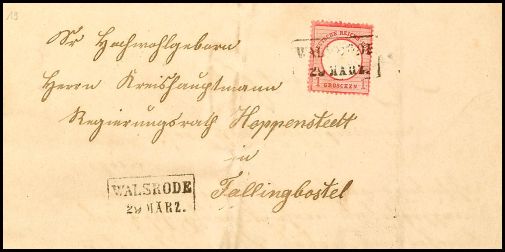 19
Sr Hochwohlgeborn
Herrn Kreishauptmann
Regierungsrath Hoppenstedt
in
Fallingbostel
WALSRODE
29 MÄRZ.
GROSCHEN
WALSRODE
29 MÄRZ.